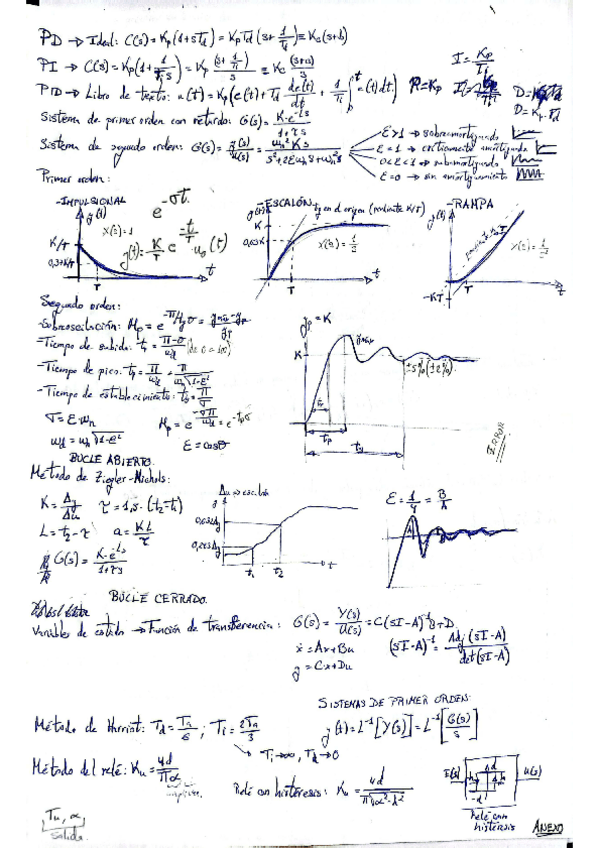 PD → Ideal: C(s) = Kp(1+sTd) = KpTd(s+1/Td) = Kc(s+b)
PI → C(s) = Kp(1+1/(Ti s)) = Kp (s+1/Ti)/s = Kc (s+a)/s
I = Kp/Ti
PID → Libro de texto: u(t) = Kp(e(t)+Td de(t)/dt + 1/Ti ∫ e(t)dt)
P=Kp
D = Kp·Td
Sistema de primer orden con retardo: G(s) = K·e^-Ls/1+τs
Sistema de segundo orden: G(s) = y(s)/u(s) = ωn² K/s²+2ξωns+ωn²
ξ>1 → sobreamortiguado
ξ=1 → críticamente amortiguado
0<ξ<1 → subamortiguado
ξ=0 → sin amortiguamiento
Primer orden:
-IMPULSIONAL
y(t)
e^-σt
X(s)=1
K/T
y(t) = K/T e^-t/T · u0(t)
T
t
-ESCALÓN
y(t)
tg en el origen (pendiente K/T)
K
0,63K
X(s) = 1/s
T
t
-RAMPA
y(t)
X(s) = 1/s²
-KT
T
t
Segundo orden:
-Sobreoscilación: Mp =
-Tiempo de subida: tr = π-θ/ωd
-Tiempo de pico: tp = π/ωd = π/ωn√1-ξ²
-Tiempo de establecimiento: ts = π/σ
σ = ξωn
ωd = ωn√1-ξ²
Mp = e^-σπ/ωd = e^-tpσ
ξ = cosθ
yp = K
K
ymax
±5% (±2%)
tr
tp
ts
ERROR
BUCLE ABIERTO
Método de Ziegler-Nichols:
K = Δy/Δu
τ = 1,5·(t2-t1)
L = t2-τ
a = KL/τ
G(s) = K·e^-Ls/1+τs
Δu → escalón
y
0,632Δy
0,283Δy
t1
t2
t
ξ = 1/4 = B/A
A
BUCLE CERRADO
Variables de estado → Función de transferencia: G(s) = Y(s)/U(s) = C(sI-A)^-1 B+D
ẋ = Ax+Bu
y = Cx+Du
(sI-A)^-1 = Adj(sI-A)/det(sI-A)
SISTEMAS DE PRIMER ORDEN:
y(t) = L^-1[Y(s)] = L^-1[G(s)/s]
Método de Harriot: Td = Ta/6; Ti = 2Ta/3
Ti→∞, Td→0
Método del relé: Ku = 4d/πα
Relé con histéresis: Ku = 4d/π√α²-h²
d
-d
U(s)
Relé con
histéresis
Tu, α
Salida
ANEXO